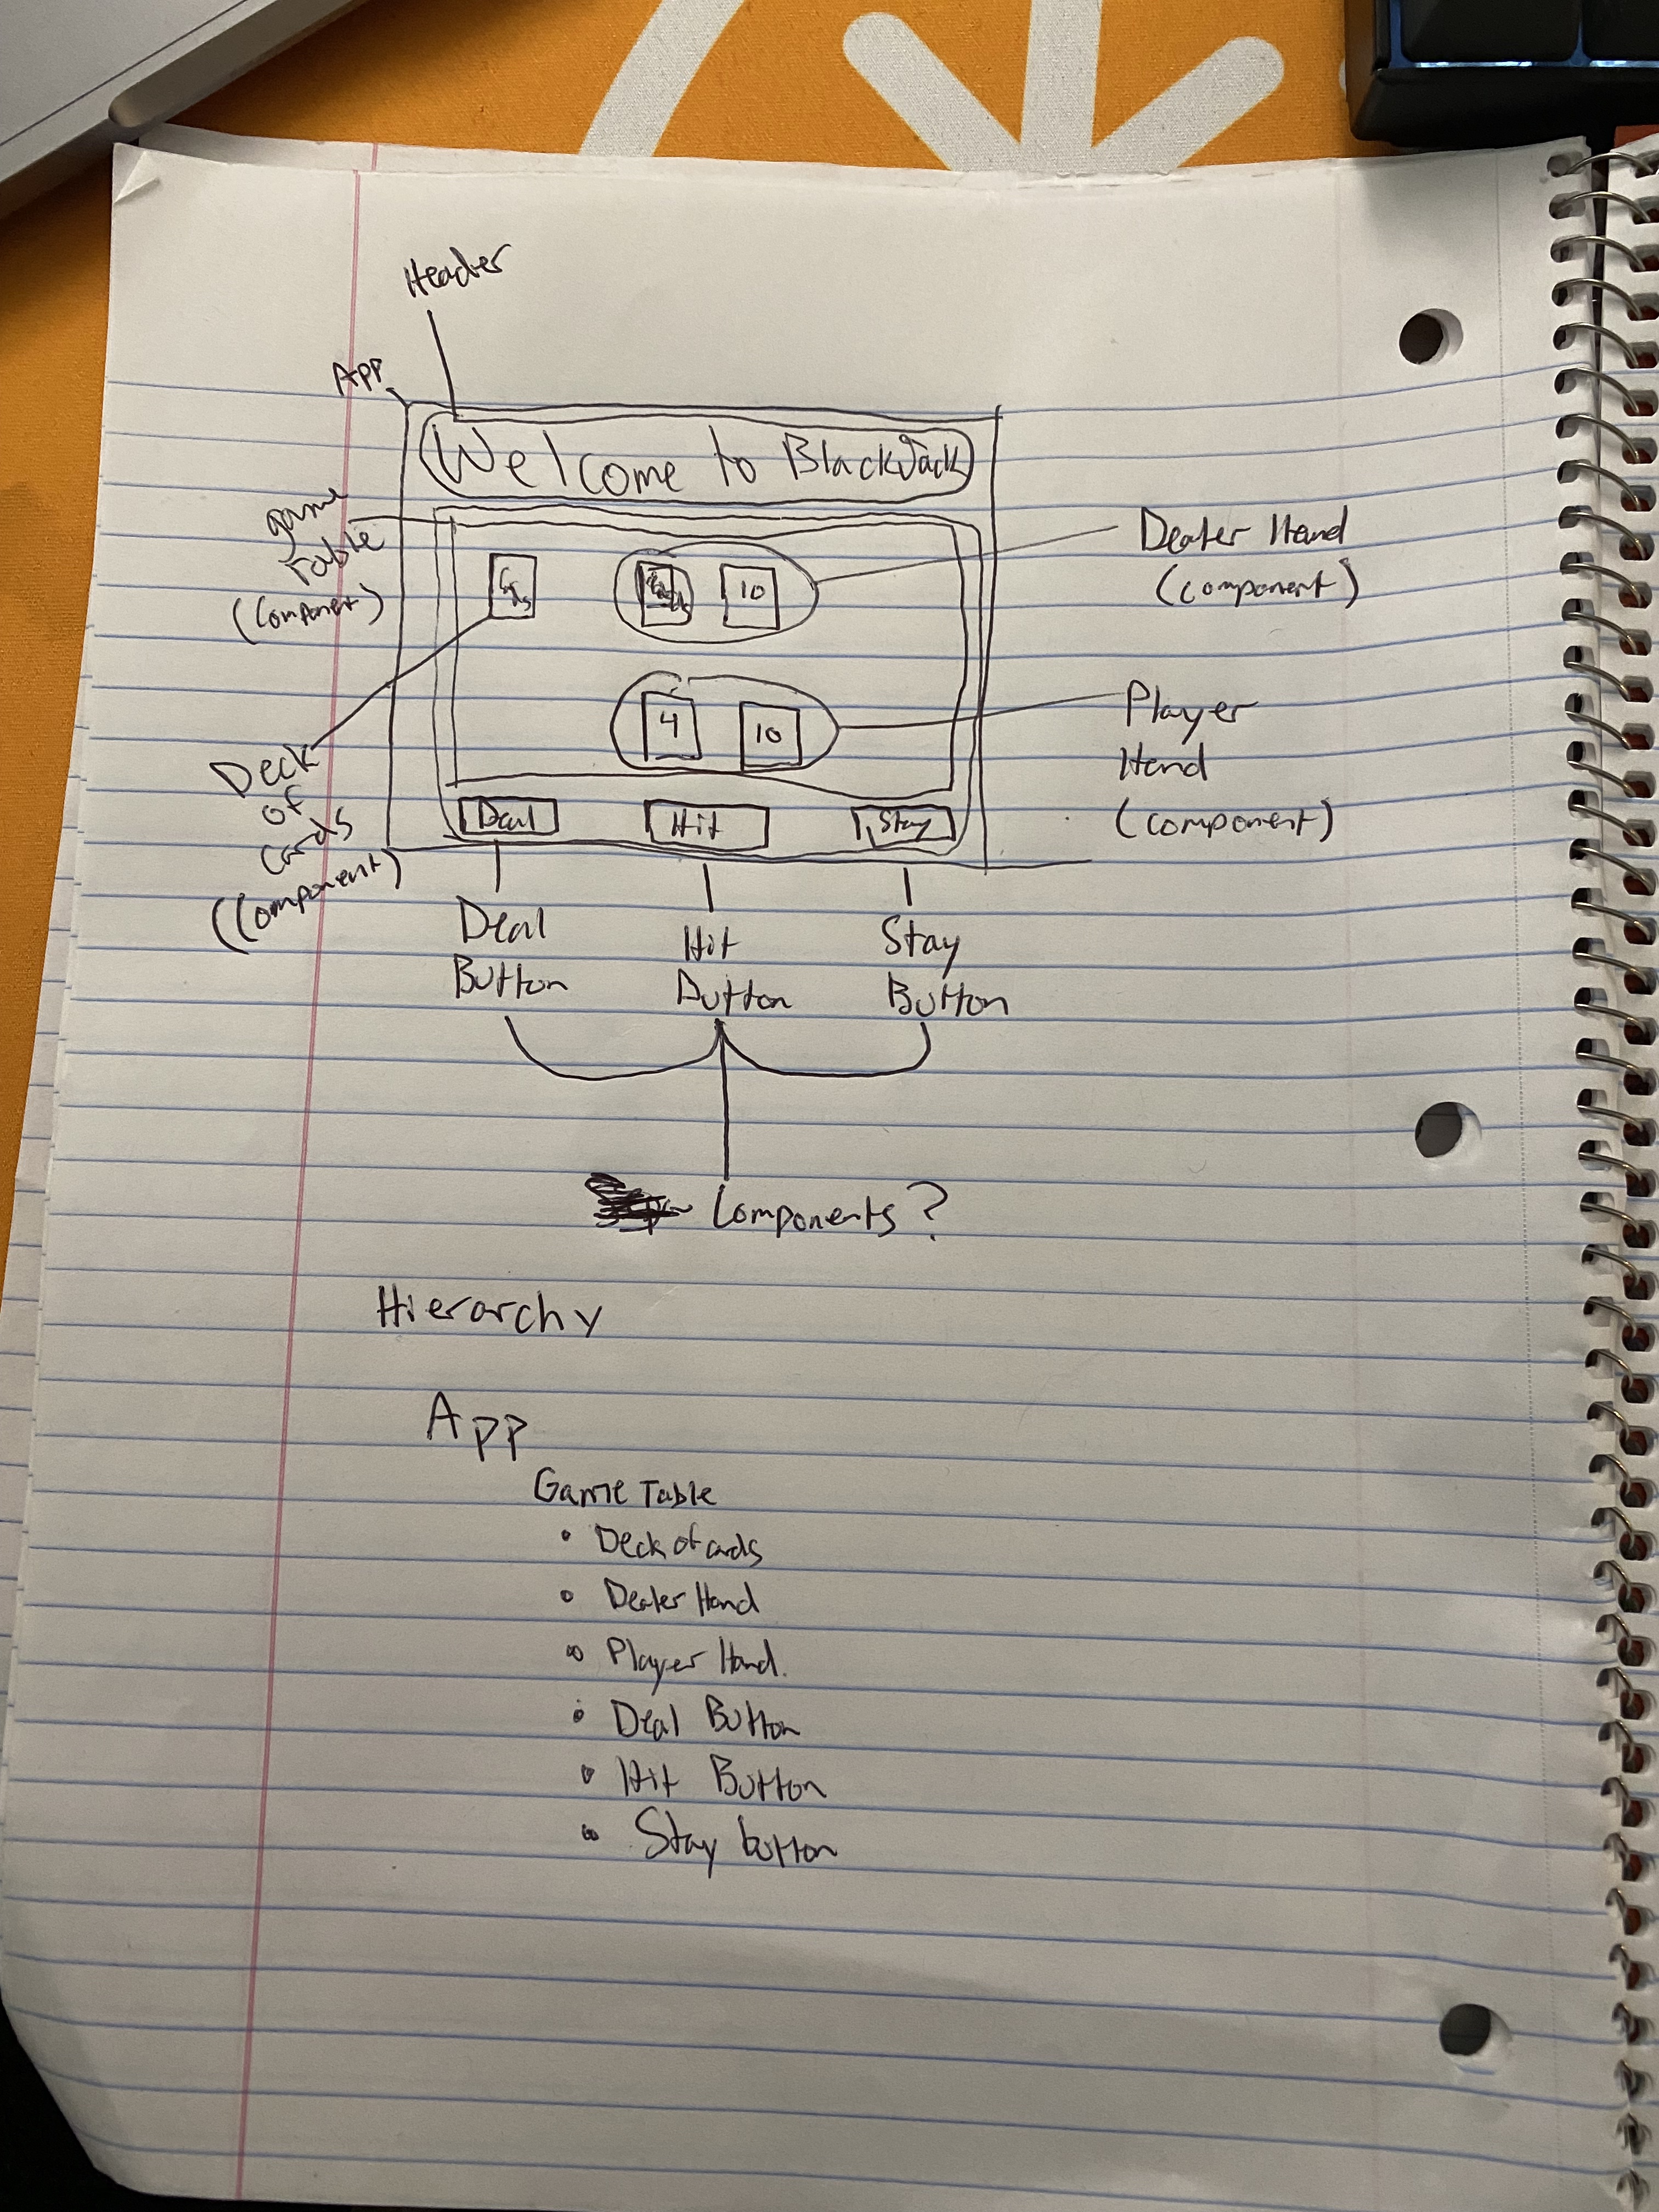 Header
App
Welcome to BlackJack
game
Table
(component)
Dealer Hand
(component)
10
4
10
Player
Hand
(component)
Deck
of
cards
(component)
Deal
Hit
Stay
Deal
Button
Hit
Button
Stay
Button
Components?
Hierarchy
App
Game Table
• Deck of cards
• Dealer Hand
• Player Hand.
• Deal Button
• Hit Button
• Stay button